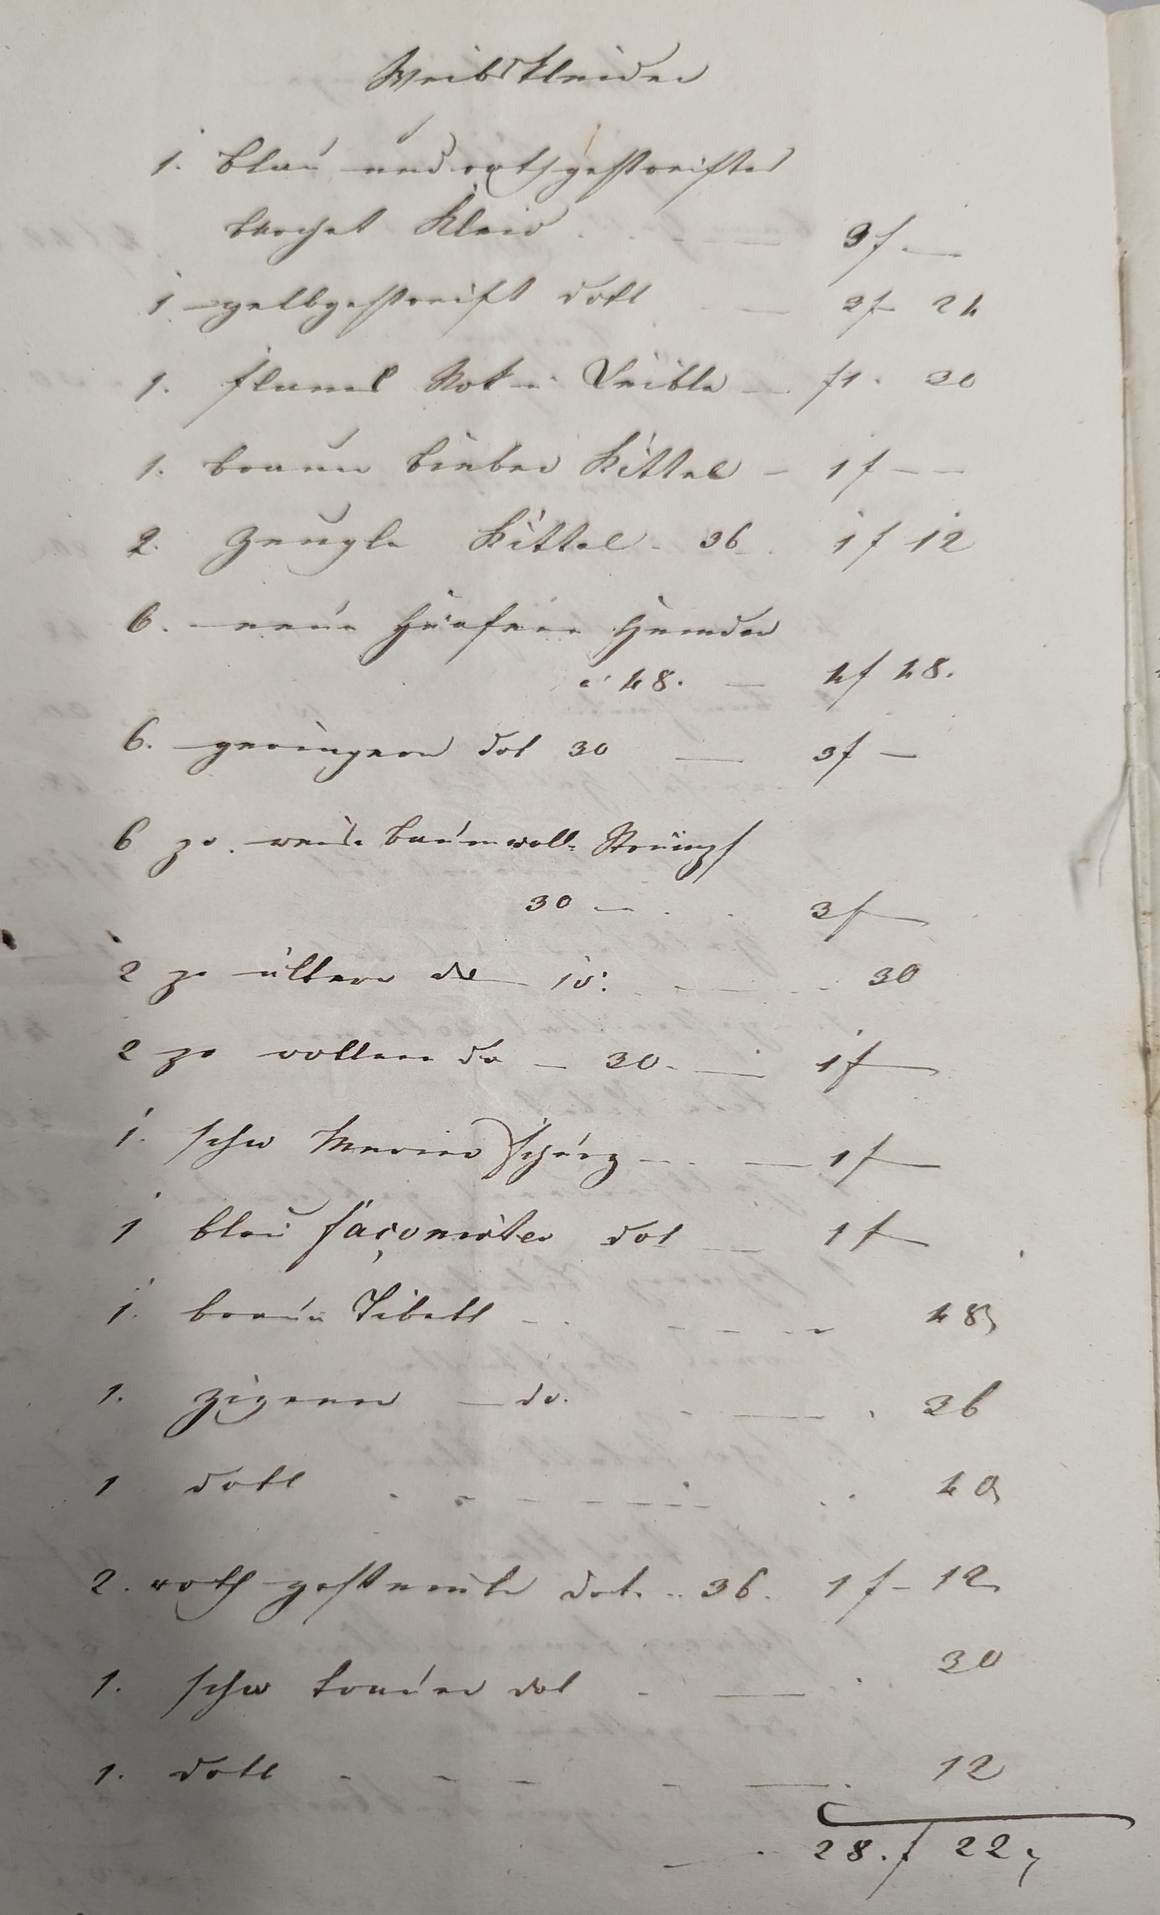 Weibskleider
1. blau und rothgestreiftes
barchet Kleid . . - — 3f —
1 gelbgestreift dotl - — 2f 24
1. flanel Rok u. Leible — f1. 30
1. braun bieber Kittel — 1f — —
2. Zeugle Kittel. 36. 1f 12
6. neue Hänfene Hemder
a 48. — 4f 48.
6. geringere dol 30 — 3f —
6 pr. weise baumwoll: Strümpf
30 — . . 3f —
2 pr ältere do 15: . - — . 30
2 pr wollene do — 30. - — 1f —
1. schw Merino Schürz — . — 1f —
1 blau façonirter dol — 1f —
1. braun Tibett - . - - - 48
1. Zizener — do. - — . 36
1 dotl . - - - - - . . 40
2. roth gestreifte dot. .. 36. 1f — 12
1. schw braune dol - — . 30
1. dotl - - - - — . 12
— . 28.f 22